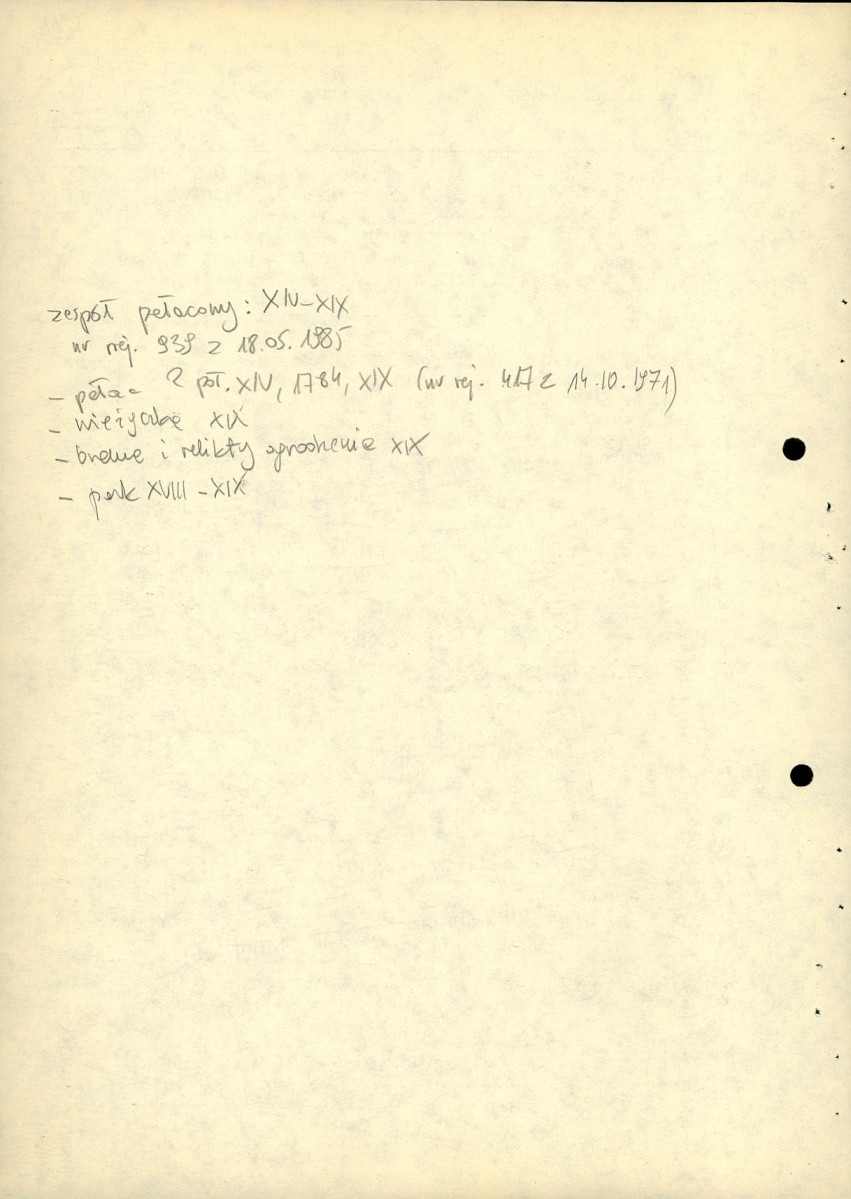 zespół pałacowy: XIV-XIX
nr rej. 939 z 18.05.1985
- pałac 2 poł. XIV, 1784, XIX (nr rej. 417 z 14.10.1971)
- wieżyczka XIX
- brama i relikty ogrodzenia XIX
- park XVIII-XIX